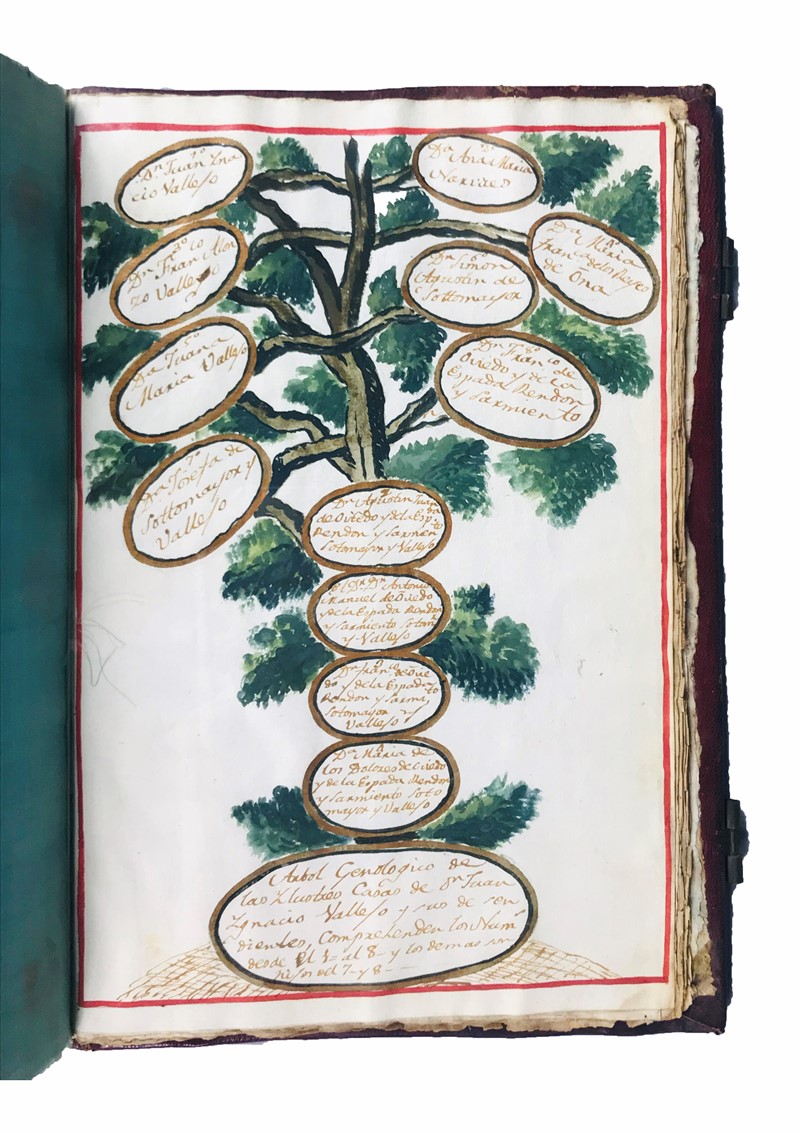 Dn. Juan Ygna
cio Vallejo
Da. Ana Maria
Narvaes
Dn. Franco Alon
zo Vallejo
Da. Maria
Franca. de los Reyes
de Oña
Da. Juana
Maria Vallejo
Dn. Simon
Agustin de
Sottomayor
Da. Josefa de
Sottomayor y
Vallejo
Dn. Franco de
Oviedo y de la
Espada Rendon
y Sarmiento
Dn. Agustin Juan
de Oviedo y de la Espda
Rendon y Sarmento
Sotomayor y Vallejo
El Dr. Dn. Antonio
Manuel de Oviedo
y de la Espada Rendon
y Sarmiento Sotom
y Vallejo
Dn. Franco. de Ovie
do y de la Espada
Rendon y Sarmto
Sotomayor y
Vallejo
Da. Maria de
los Dolores de Oviedo
y de la Espada Rendon
y Sarmiento Soto
mayor y Vallejo
Arbol Genologico de
las Ylustres Casas de Dn Juan
Ygnacio Vallejo y sus de sen
dientes, Comprehenden los Nums
desde el 1= al 8- y los demas son
hijos del 7- y 8-